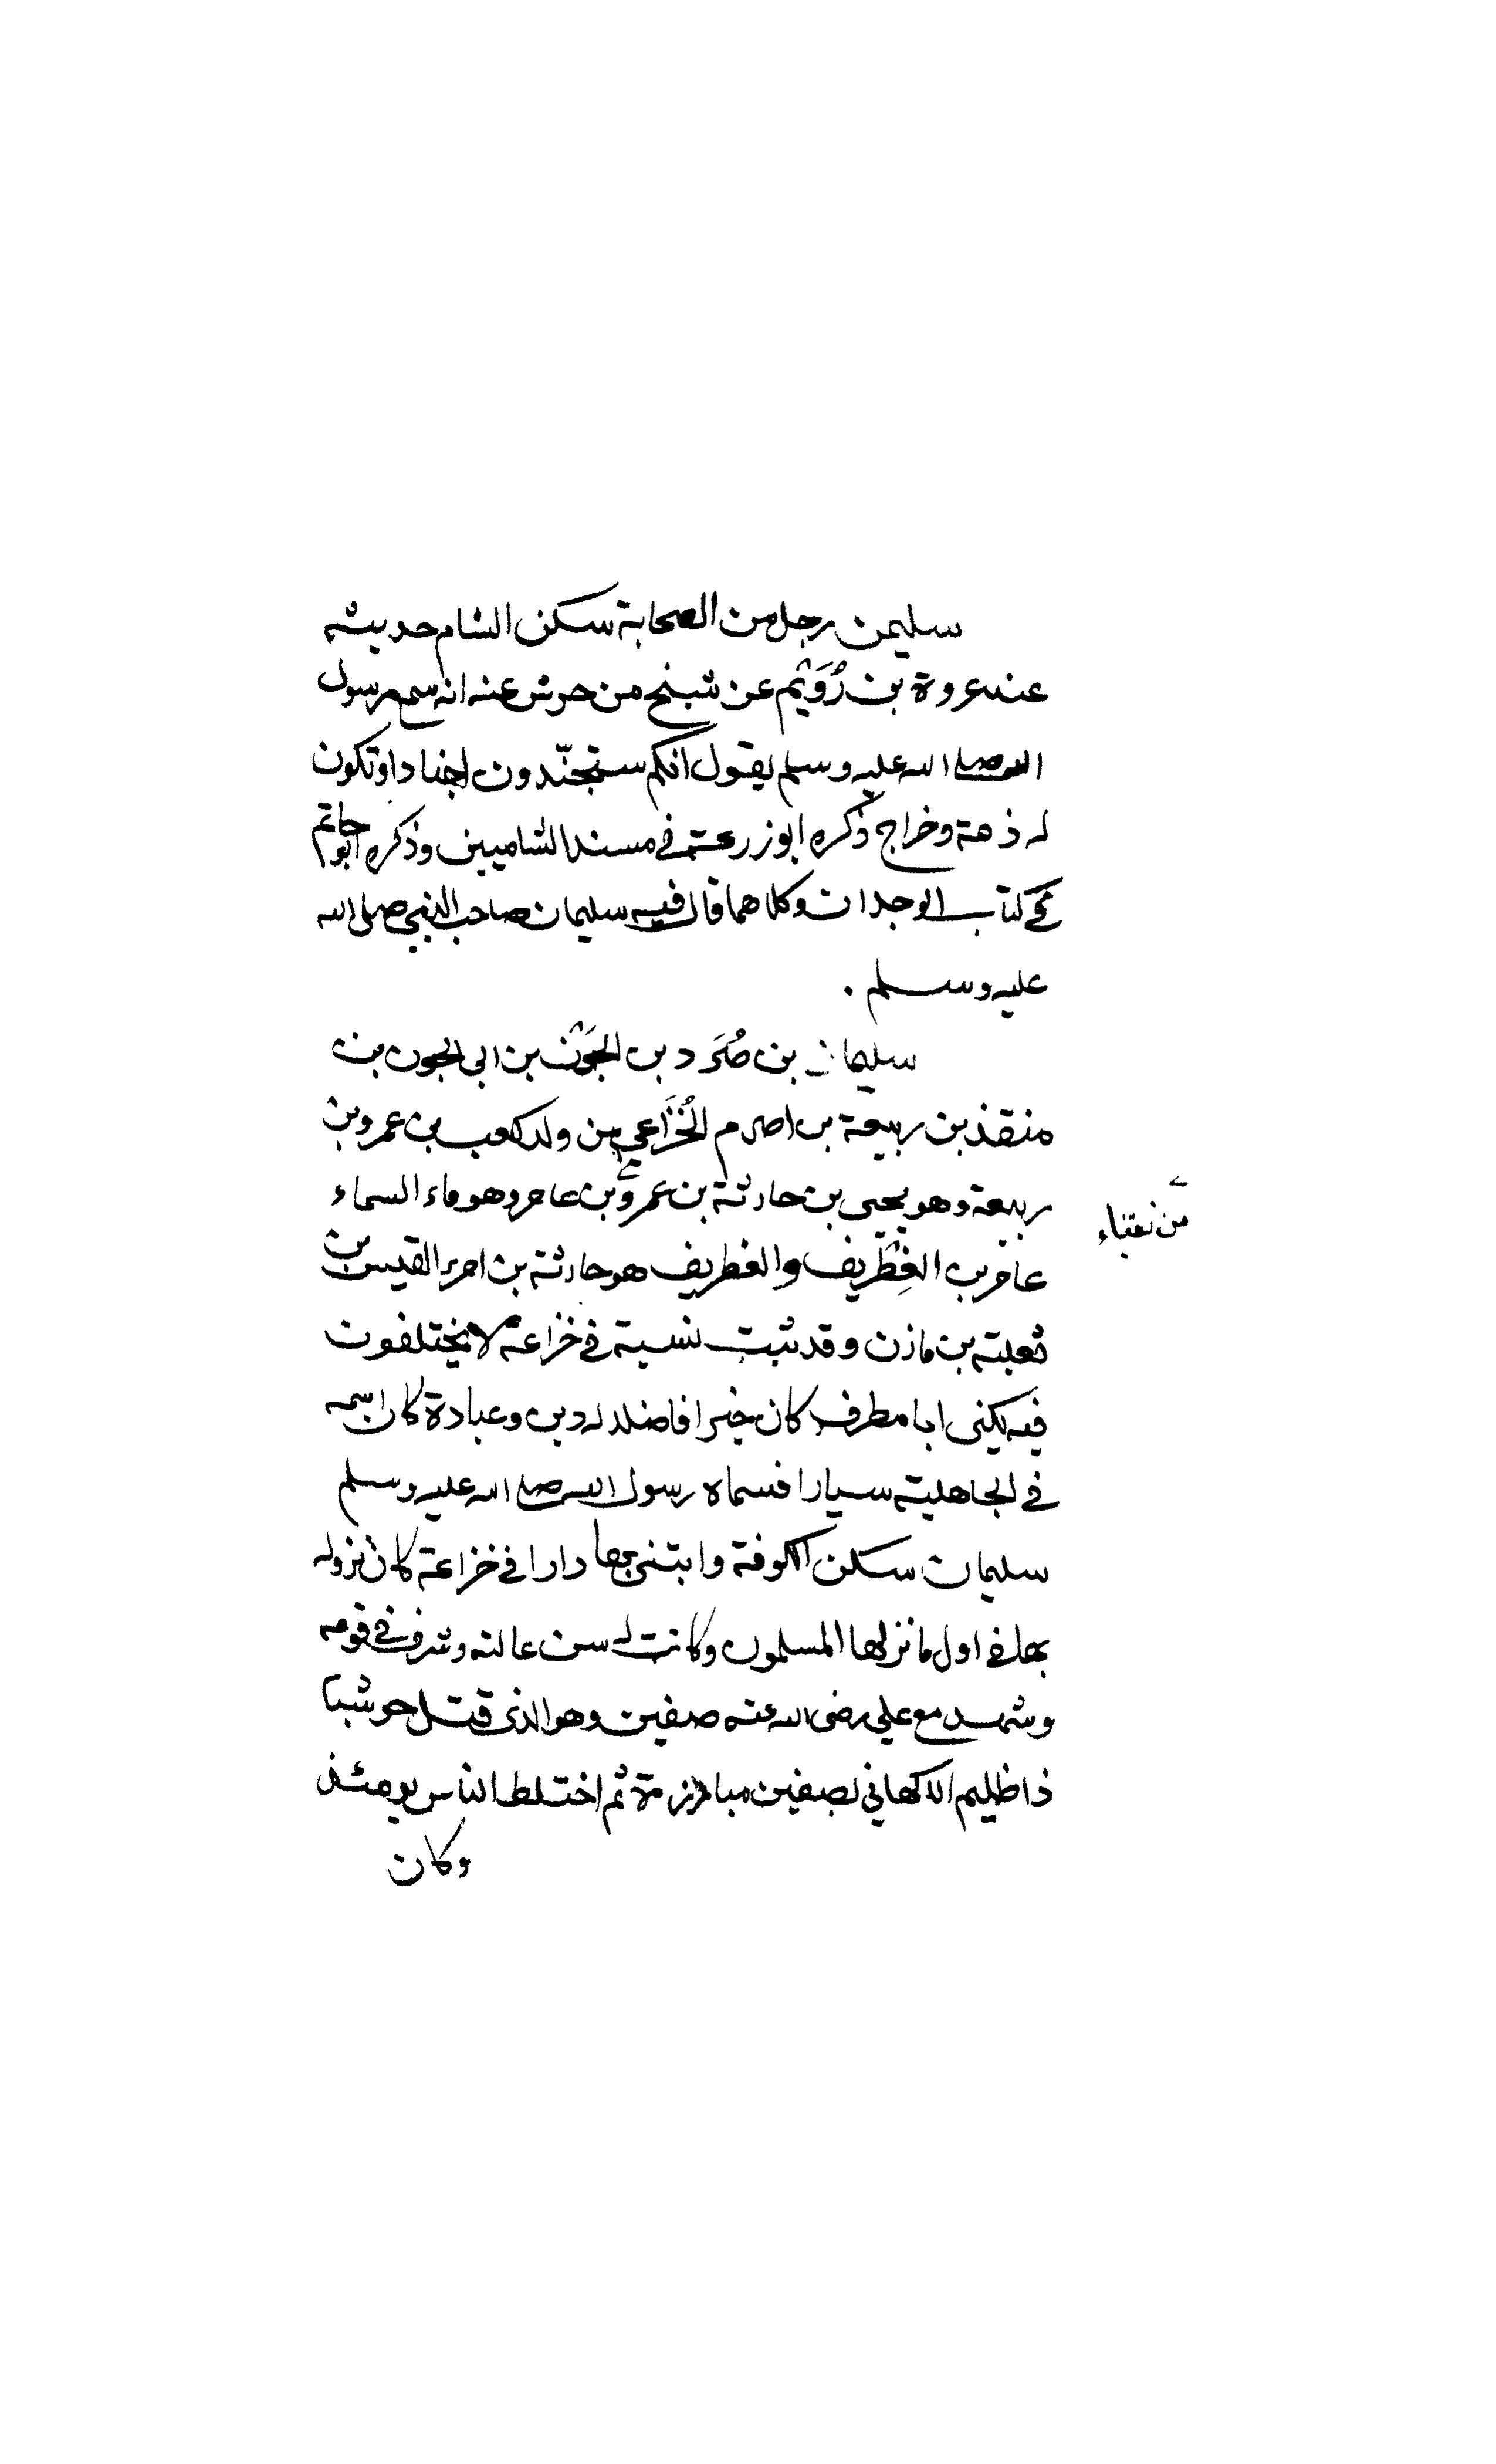 سليمن رجل من الصحابة سكن الشام حديثه
عند عروة بن رُوَيْم عن شيخ من حرش عنه انه سمع رسول
الله صلى الله عليه وسلم يقول انكم ستجنّدون اجنادا وتكون
له ذمة وخراج ذكره ابو زرعة في مسند الشاميين وذكره ابو حاتم
في كتاب الوحدان وكلاهما قال فيه سليمان صاحب النبي صلى الله
عليه وسلم .
سليمان بن صُرَد بن الجَوْن بن ابي الجون بن
منقذ بن ربيعة بن اصرم الخُزَاعي من ولد كعب بن عمرو بن
ربيعة وهو يحيى بن حارثة بن عمرو بن عامر وهو ماء السماء
من نقباء
عامر بن الغِطْريف والغطريف هو حارثة بن امرء القيس بن
ثعلبة بن مازن وقد ثبت نسبة في خزاعة لا يختلفون
فيه يكنى ابا مطرف كان خيرا فاضلا له دين وعبادة كان اسمه
في الجاهلية سيارا فسماه رسول الله صلى الله عليه وسلم
سليمان سكن الكوفة وابتنى بها دارا في خزاعة كان نزوله
بها في اول ما نزلها المسلمون وكانت له سن عالية وشرف في قومه
وشهد مع علي رضى الله عنه صفين وهو الذى قتل حوشبا
ذا ظليم الالهاني بصفين مبارزة ثم اختلط الناس يومئذ
وكان